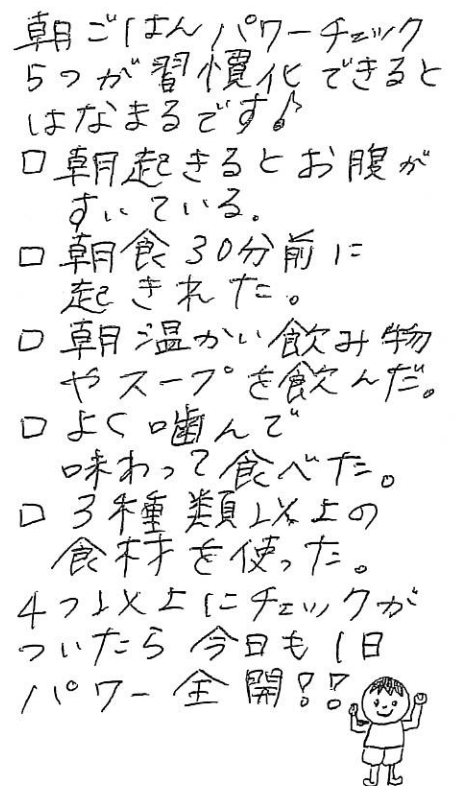 朝ごはんパワーチェック
5つが習慣化できると
はなまるです♪
□ 朝起きるとお腹が
すいている。
□ 朝食30分前に
起きれた。
□ 朝温かい飲み物
やスープを飲んだ。
□ よく噛んで
味わって食べた。
□ 3種類以上の
食材を使った。
4つ以上にチェックが
ついたら今日も1日
パワー全開!!